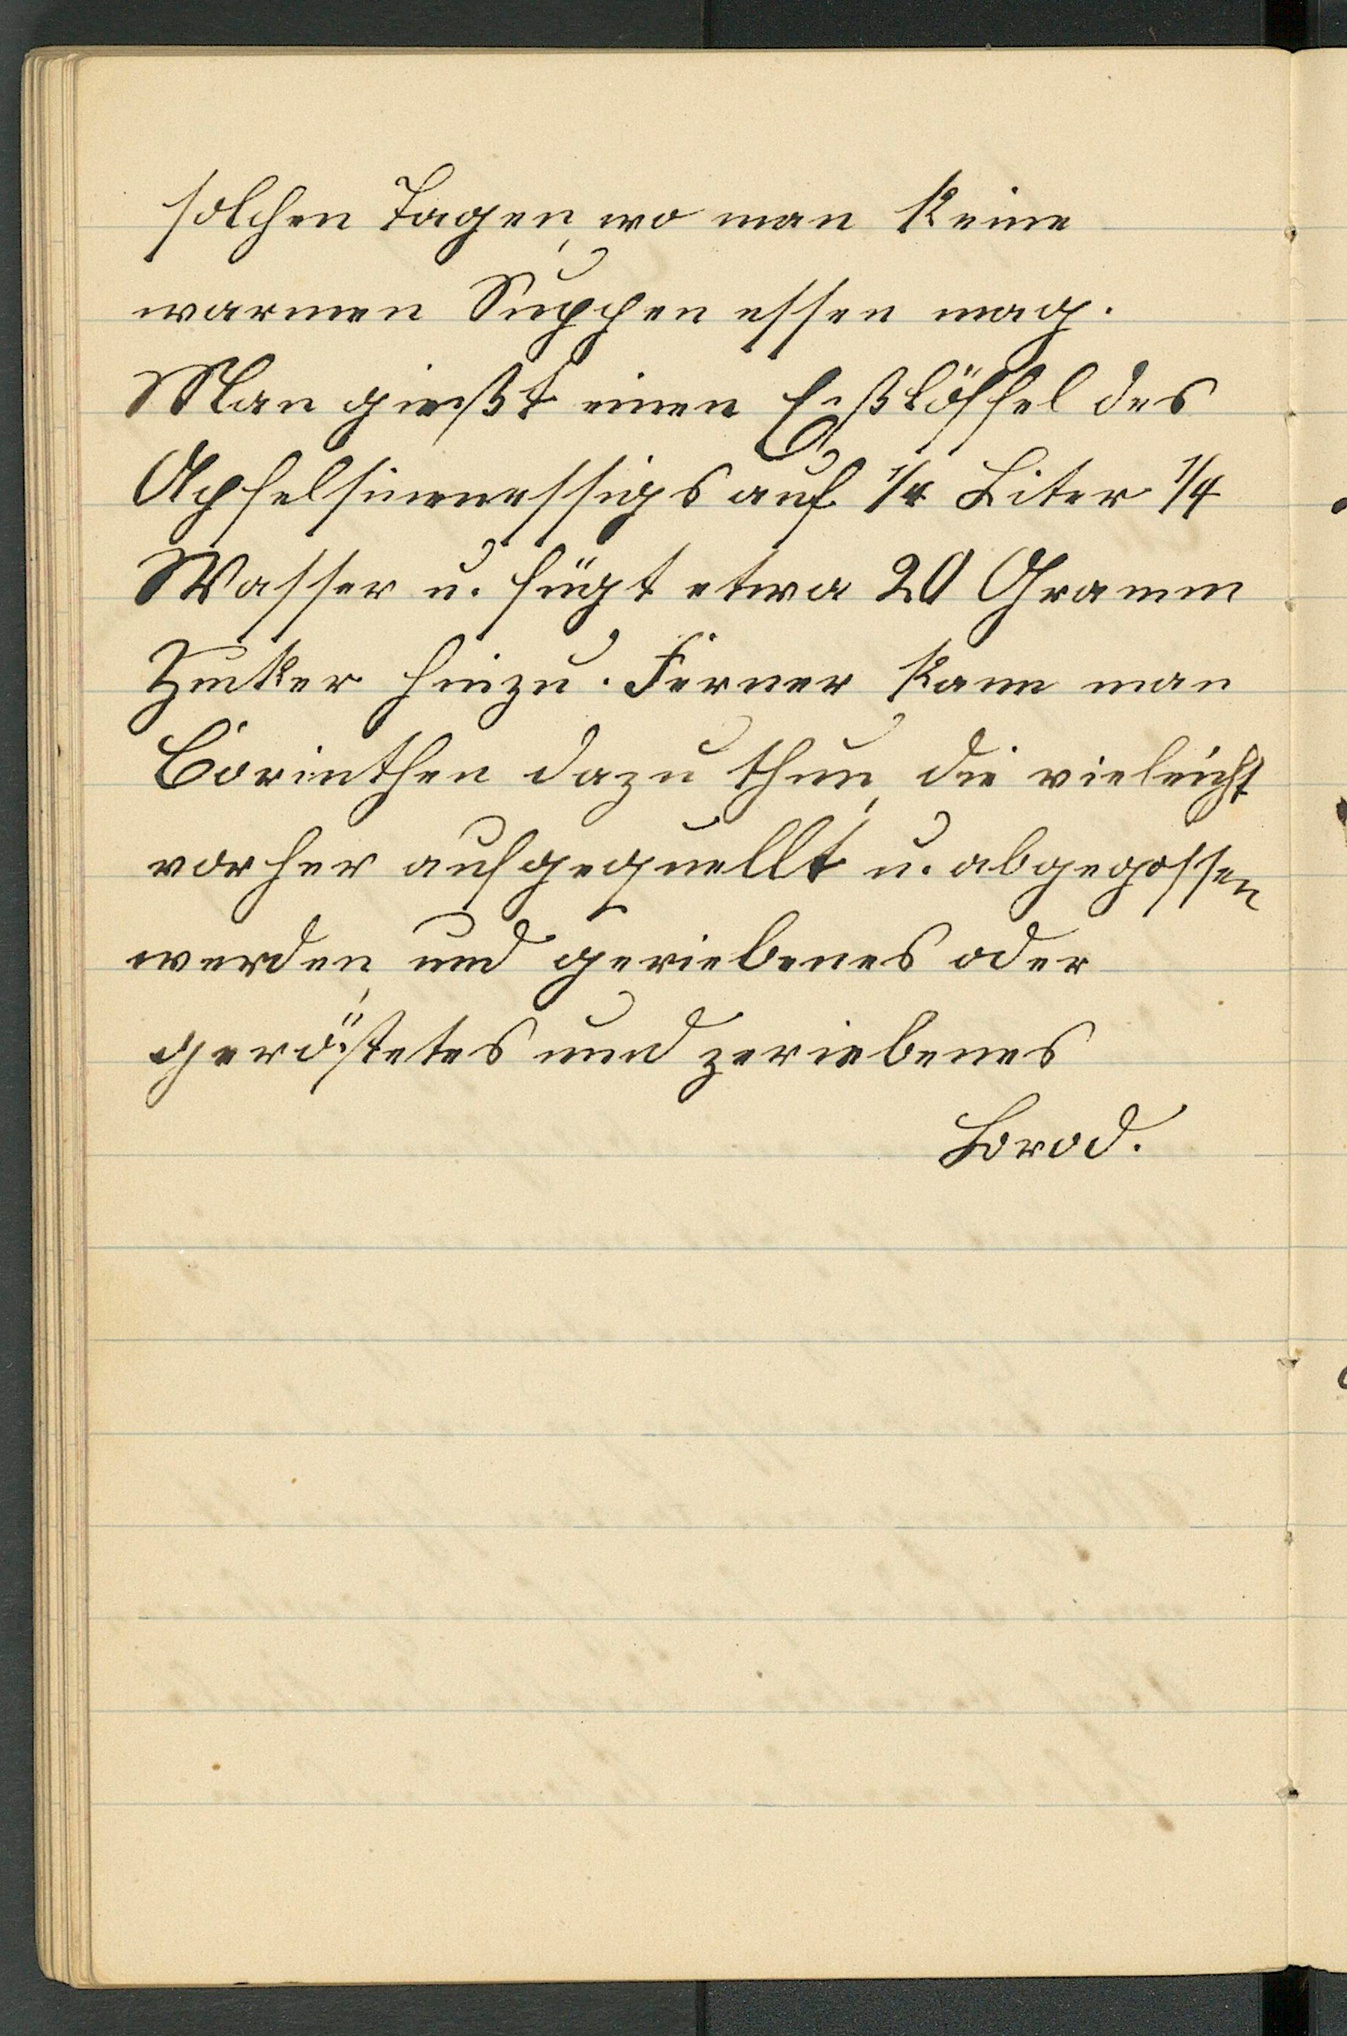 solchen Tagen, wo man keine
warmen Suppen essen mag.
Man gießt einen Eßlöffel des
Apfelsinenessigs auf 1/4 Liter 1/4
Wasser u. fügt etwa 20 Gramm
Zucker hinzu. Ferner kann man
Corinthen dazu thun, die vieleicht
vorher aufgequellt u. abgegossen
werden, und geriebenes oder
geröstetes und zeriebenes
Brod.